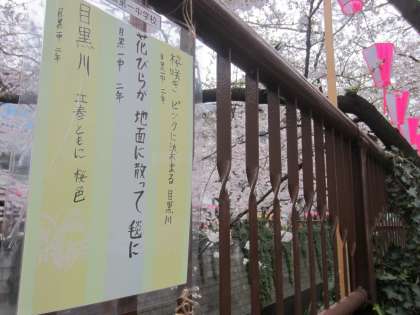 第一中学校
桜咲き ピンクに染まる 目黒川
目黒一中 二年
花びらが 地面に散って 毯に
目黒一中 二年
目黒川 江春ともに 桜色
目黒一中 二年